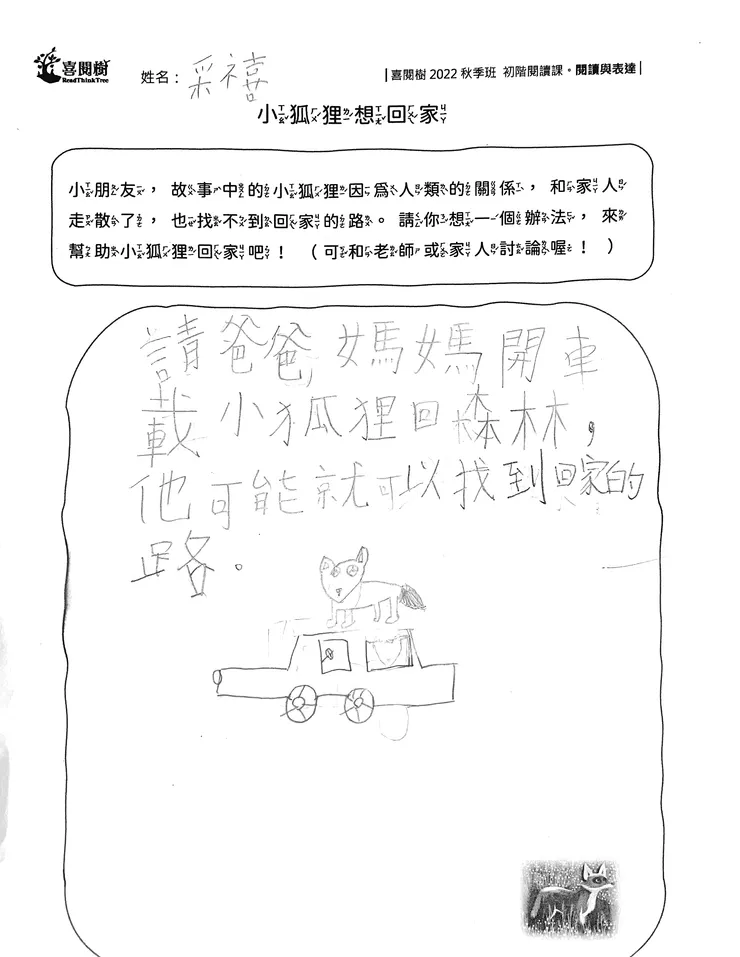 喜閱樹
ReadThinkTree
姓名：采禧
|喜閱樹 2022 秋季班 初階閱讀課。閱讀與表達|
小狐狸想回家
小朋友，故事中的小狐狸因為人類的關係，和家人
走散了，也找不到回家的路。請你想一個辦法，來
幫助小狐狸回家吧！（可和老師或家人討論喔！）
請爸爸，媽媽開車
載小狐狸回森林，
他可能就可以找到回家的
路。